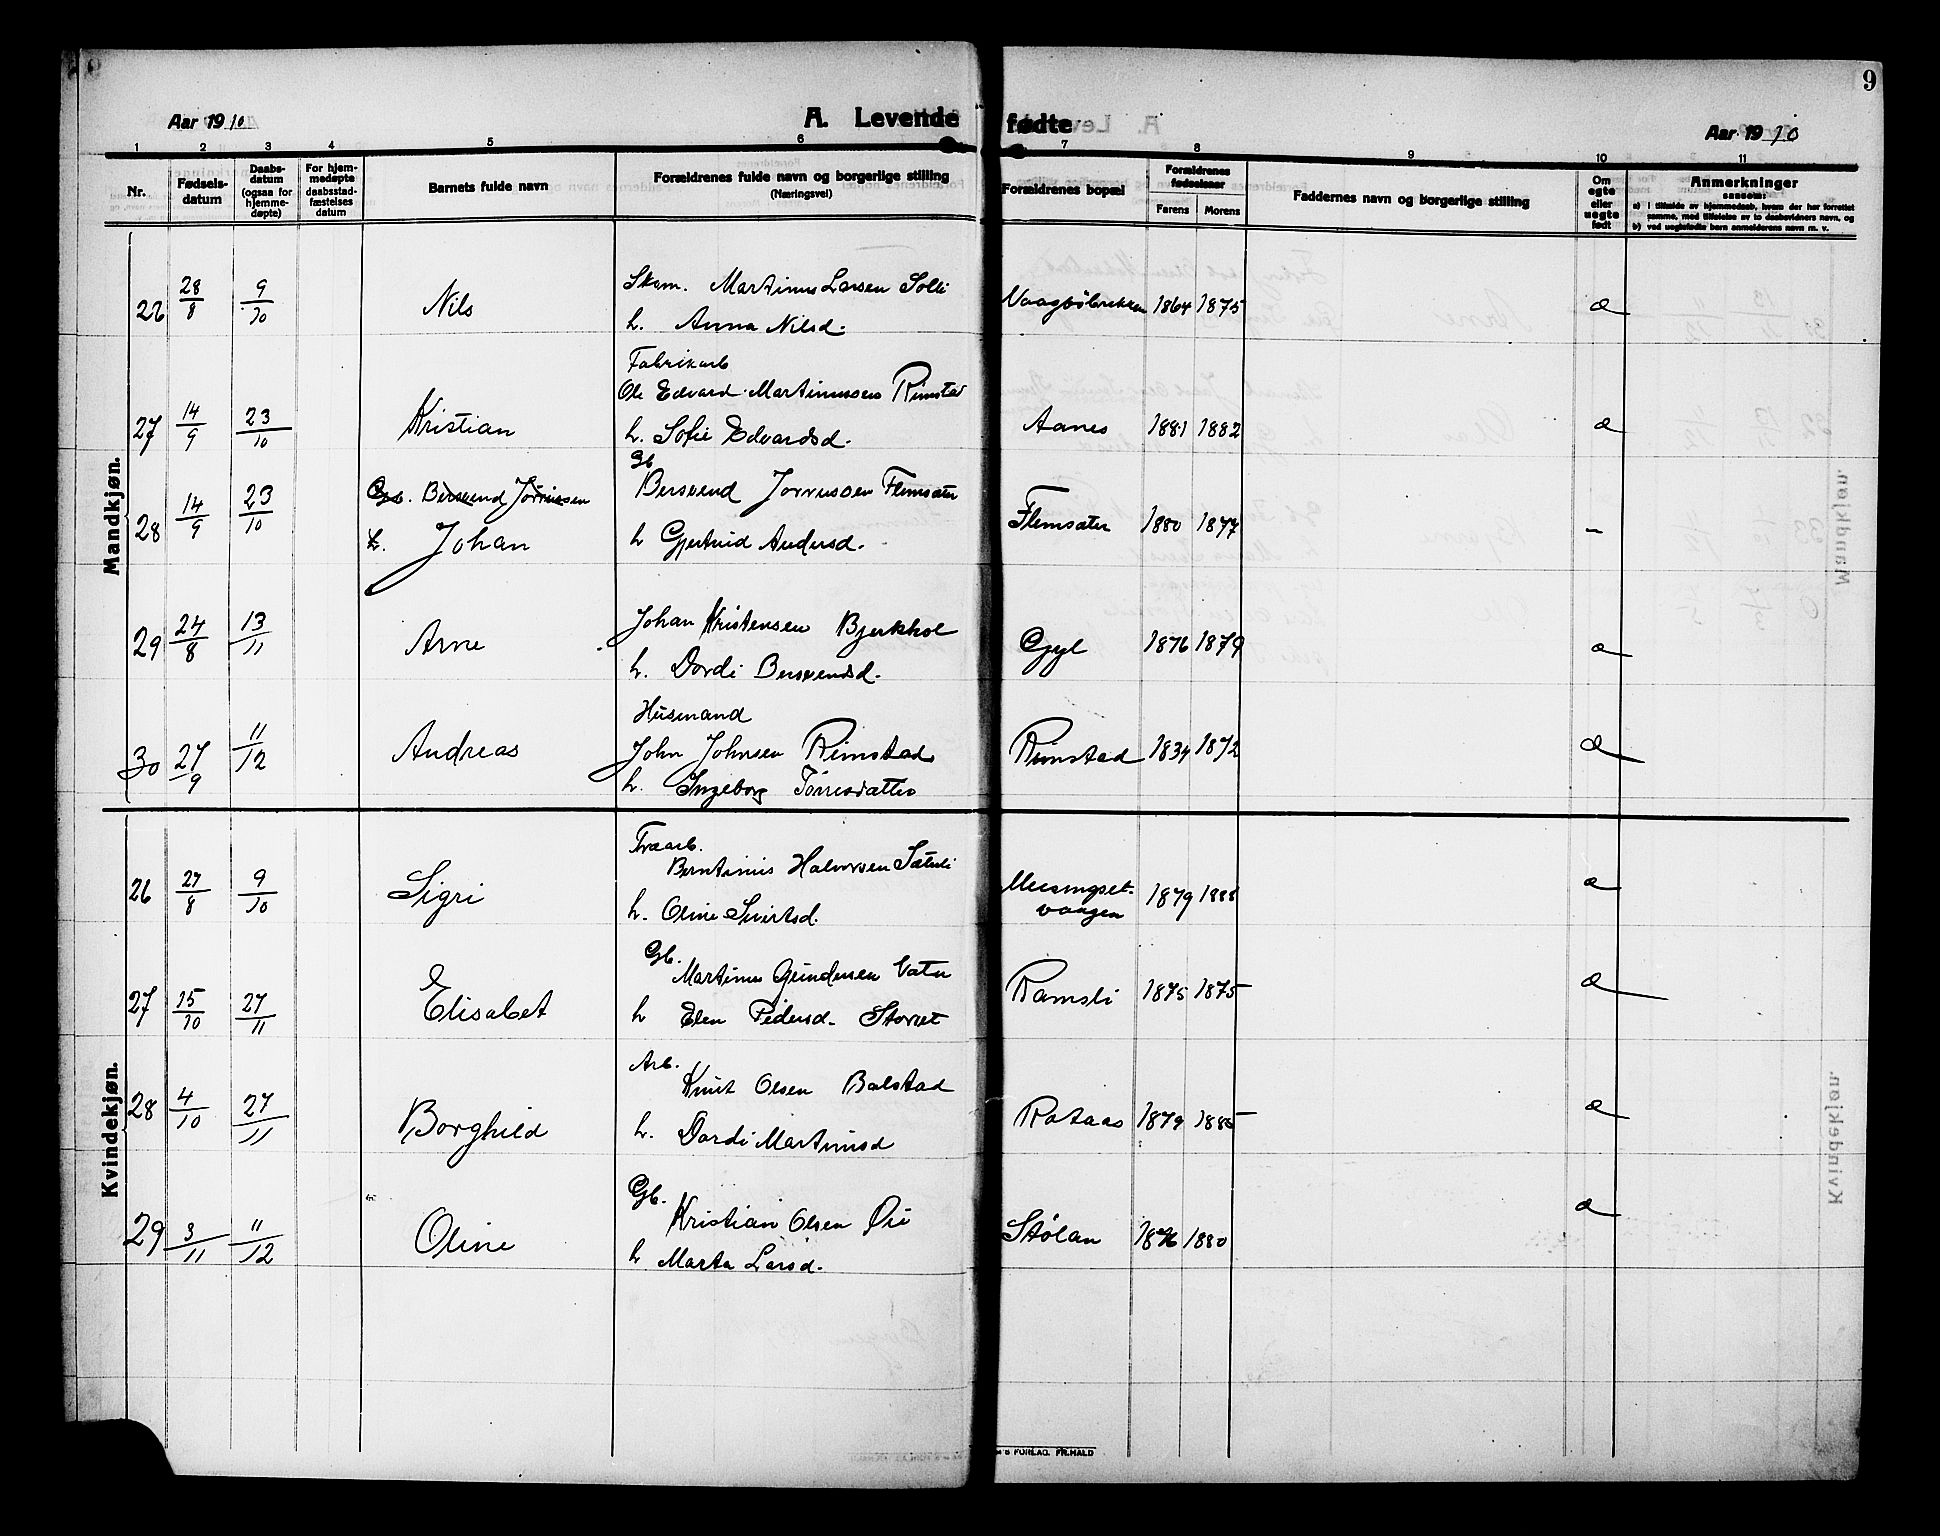 9
Aar 1910
A. Levende fødte
Aar 1910
1 2 3 4 5 6 7 8 9 10 11
Nr.
Fødsels-datum
Daabs-datum (ogsaa for hjemme-døpte)
For hjem-medøpte daabsstad-fæstelses datum
Barnets fulde navn
Forældrenes fulde navn og borgerlige stilling (Næringsvei)
Forældrenes bopæl
Forældrenes fødselsaar
Farens Morens
Faddernes navn og borgerlige stilling
Om egte eller uegte født
Anmerkninger
saasom:
a) i tilfælde av hjemmedaab, hvem der har forrettet
samme, med tilføielse av to daabsvidners navn, og
b) ved uegtefødte barn anmelderens navn m. v.
Mandkjøn.
26 28/8 9/10 Nils
Skom. Martinus Larsen Solli
h. Anna Nilsd.
Vaagbøbrekken 1864 1875
27 14/9 23/10 Kristian
Fabrikarb
Ole Edvard Martinussen Rimstad
h. Sofie Edvardsd.
Aanes 1881 1882
28 14/9 23/10
Gb. Bersvend Jørrissen
h. Johan
Gb
Bersvend Jørrissen Flemsæter
h Gjertrud Andersd.
Flemsæter 1880 1877 -
29 24/8 13/11 Arne
Johan Kristensen Bjerkhol
h. Dordi Bersvendsd.
Gyl 1876 1879
30 27/9 11/12 Andreas
Husmand
John Johnsen Rimstad
h. Ingeborg Tørrisdatter
Rimstad 1834 1872
Kvindekjøn.
26 27/8 9/10 Sigri
Træarb.
Berntinus Halvorsen Sætuli
h. Oline Sivertsd.
Meisingset-
vaagen 1879 1888
27 15/10 27/11 Elisabet
Gb.
Martinus Gundersen Vatn
h Elen Pedersd. Storset
Ramsli 1875 1875
28 4/10 27/11 Borghild
Arb.
Knut Olsen Bolstad
h. Dordi Martinusd
Rotaas 1879 1885
29 3/11 11/12 Oline
Gb.
Kristian Olsen Øie
h Marta Larsd.
Stølan 1876 1880
'S FORLAG. FR.HALD